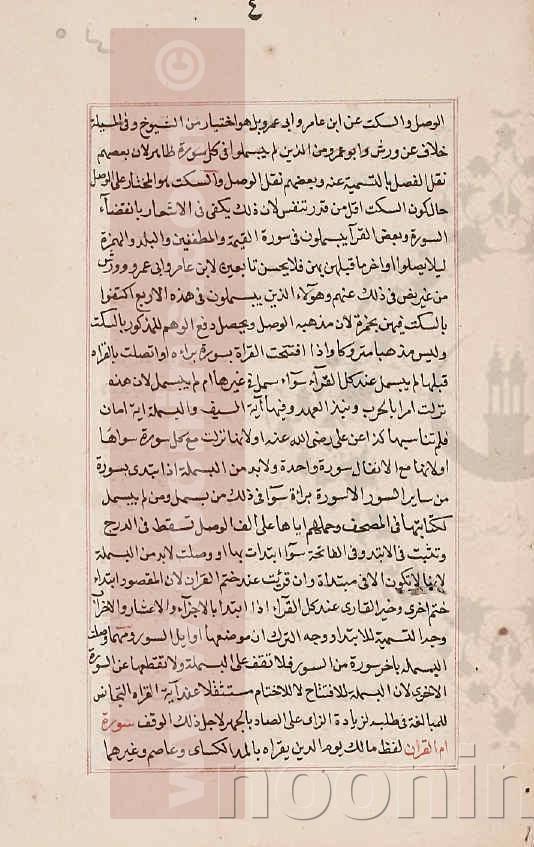 ٤
الوصل والسكت عن ابن عامر وابى عمرو بل هو اختيار من الشيوخ وفى المسيلة
خلاف عن ورش وابو عمرو من الذين لم يبسملوا فى كل سورة ظاهر لان بعضهم
نقل الفصل بالتسمية عنه وبعضهم نقل الوصل والسكت هو المختار على الوصل
حال كون السكت اقل من قدر تنفس لان ذلك يكفى فى الاشعار بانقضآء
السورة وبعض القرآ يبسملون فى سورة القيمة والمطففين والبلد والهمزة
ليلا يصلوا اواخر ما قبلهن بهن فلا يحسن تابعين لابن عامر وابى عمرو وورش
من غير نص فى ذلك عنهم وهولآء الذين يبسملون فى هذه الاربع اكتفوا
بالسكت فيهن بحمزة لان مذهبه الوصل ويحصل دفع الوهم المذكور بالسكت
وليس مذهبا متروكا واذا افتتحت القراة بسورة براءة او اتصلت بالقراه
قبلها لم يبسمل عند كل القرآء سوآء بسمل فى غيرها ام لم يبسمل لان هذه
نزلت امرا بالحرب ونبذ العهد وفيها آية السيف والبسملة اية امان
فلم تناسبها كذا عن على رضى الله عنه اولانها نزلت مع كل سورة سواها
اولانها مع الانفال سورة واحدة ولا بد من البسملة اذا ابتدى بسورة
من ساير السور الا سورة براءة سوآ فى ذلك من بسمل ومن لم يبسمل
ككتابتها فى المصحف وحملهم اياها على الف الوصل تسقط فى الدرج
وتثبت فى الابتدو وفى الفاتحة سوآ ابتدات بها او وصلت لا بد من البسملة
لانها لا يكون الا فى مبتداة وان قرئت عند ختم القران لان المقصود ابتداء
ختم اخرى وخير القارى عند كل القرآء اذا ابتدا بالاجزآء والاعشار والاخرآ
وجه التسمية للابتدا ووجه الترك ان موضعها اوايل السور ومهما وصلت
البسملة باخر سورة من السور فلا تقف على البسملة ولا تقطعها عن السورة
الاخرى لان البسملة للافتتاح لا للاختتام مستثقلا عند آية القراه
للمبالغة فى طلبه لزيادة الزاى على الصاد بالجهر لاجل ذلك الوقف سورة
ام القران لفظ مالك يوم الدين يقراه بالمد الكساى وعاصم وغيرهما
noonin